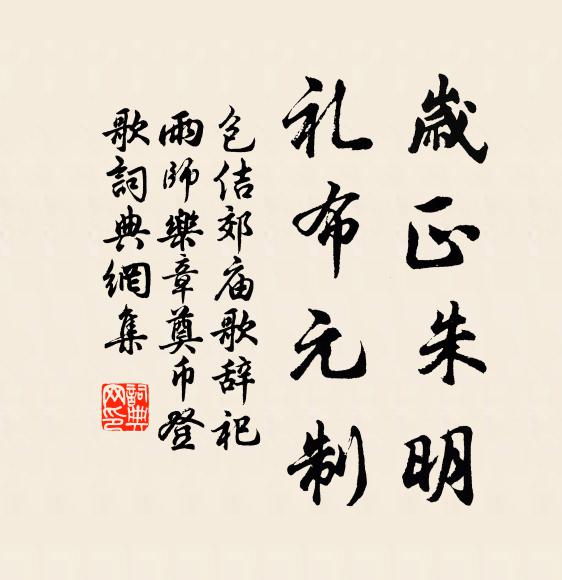 歲正朱明
礼布元制
包佶郊庙歌辞祀
雨師樂章奠币登
歌詞典網集
詞典
网印